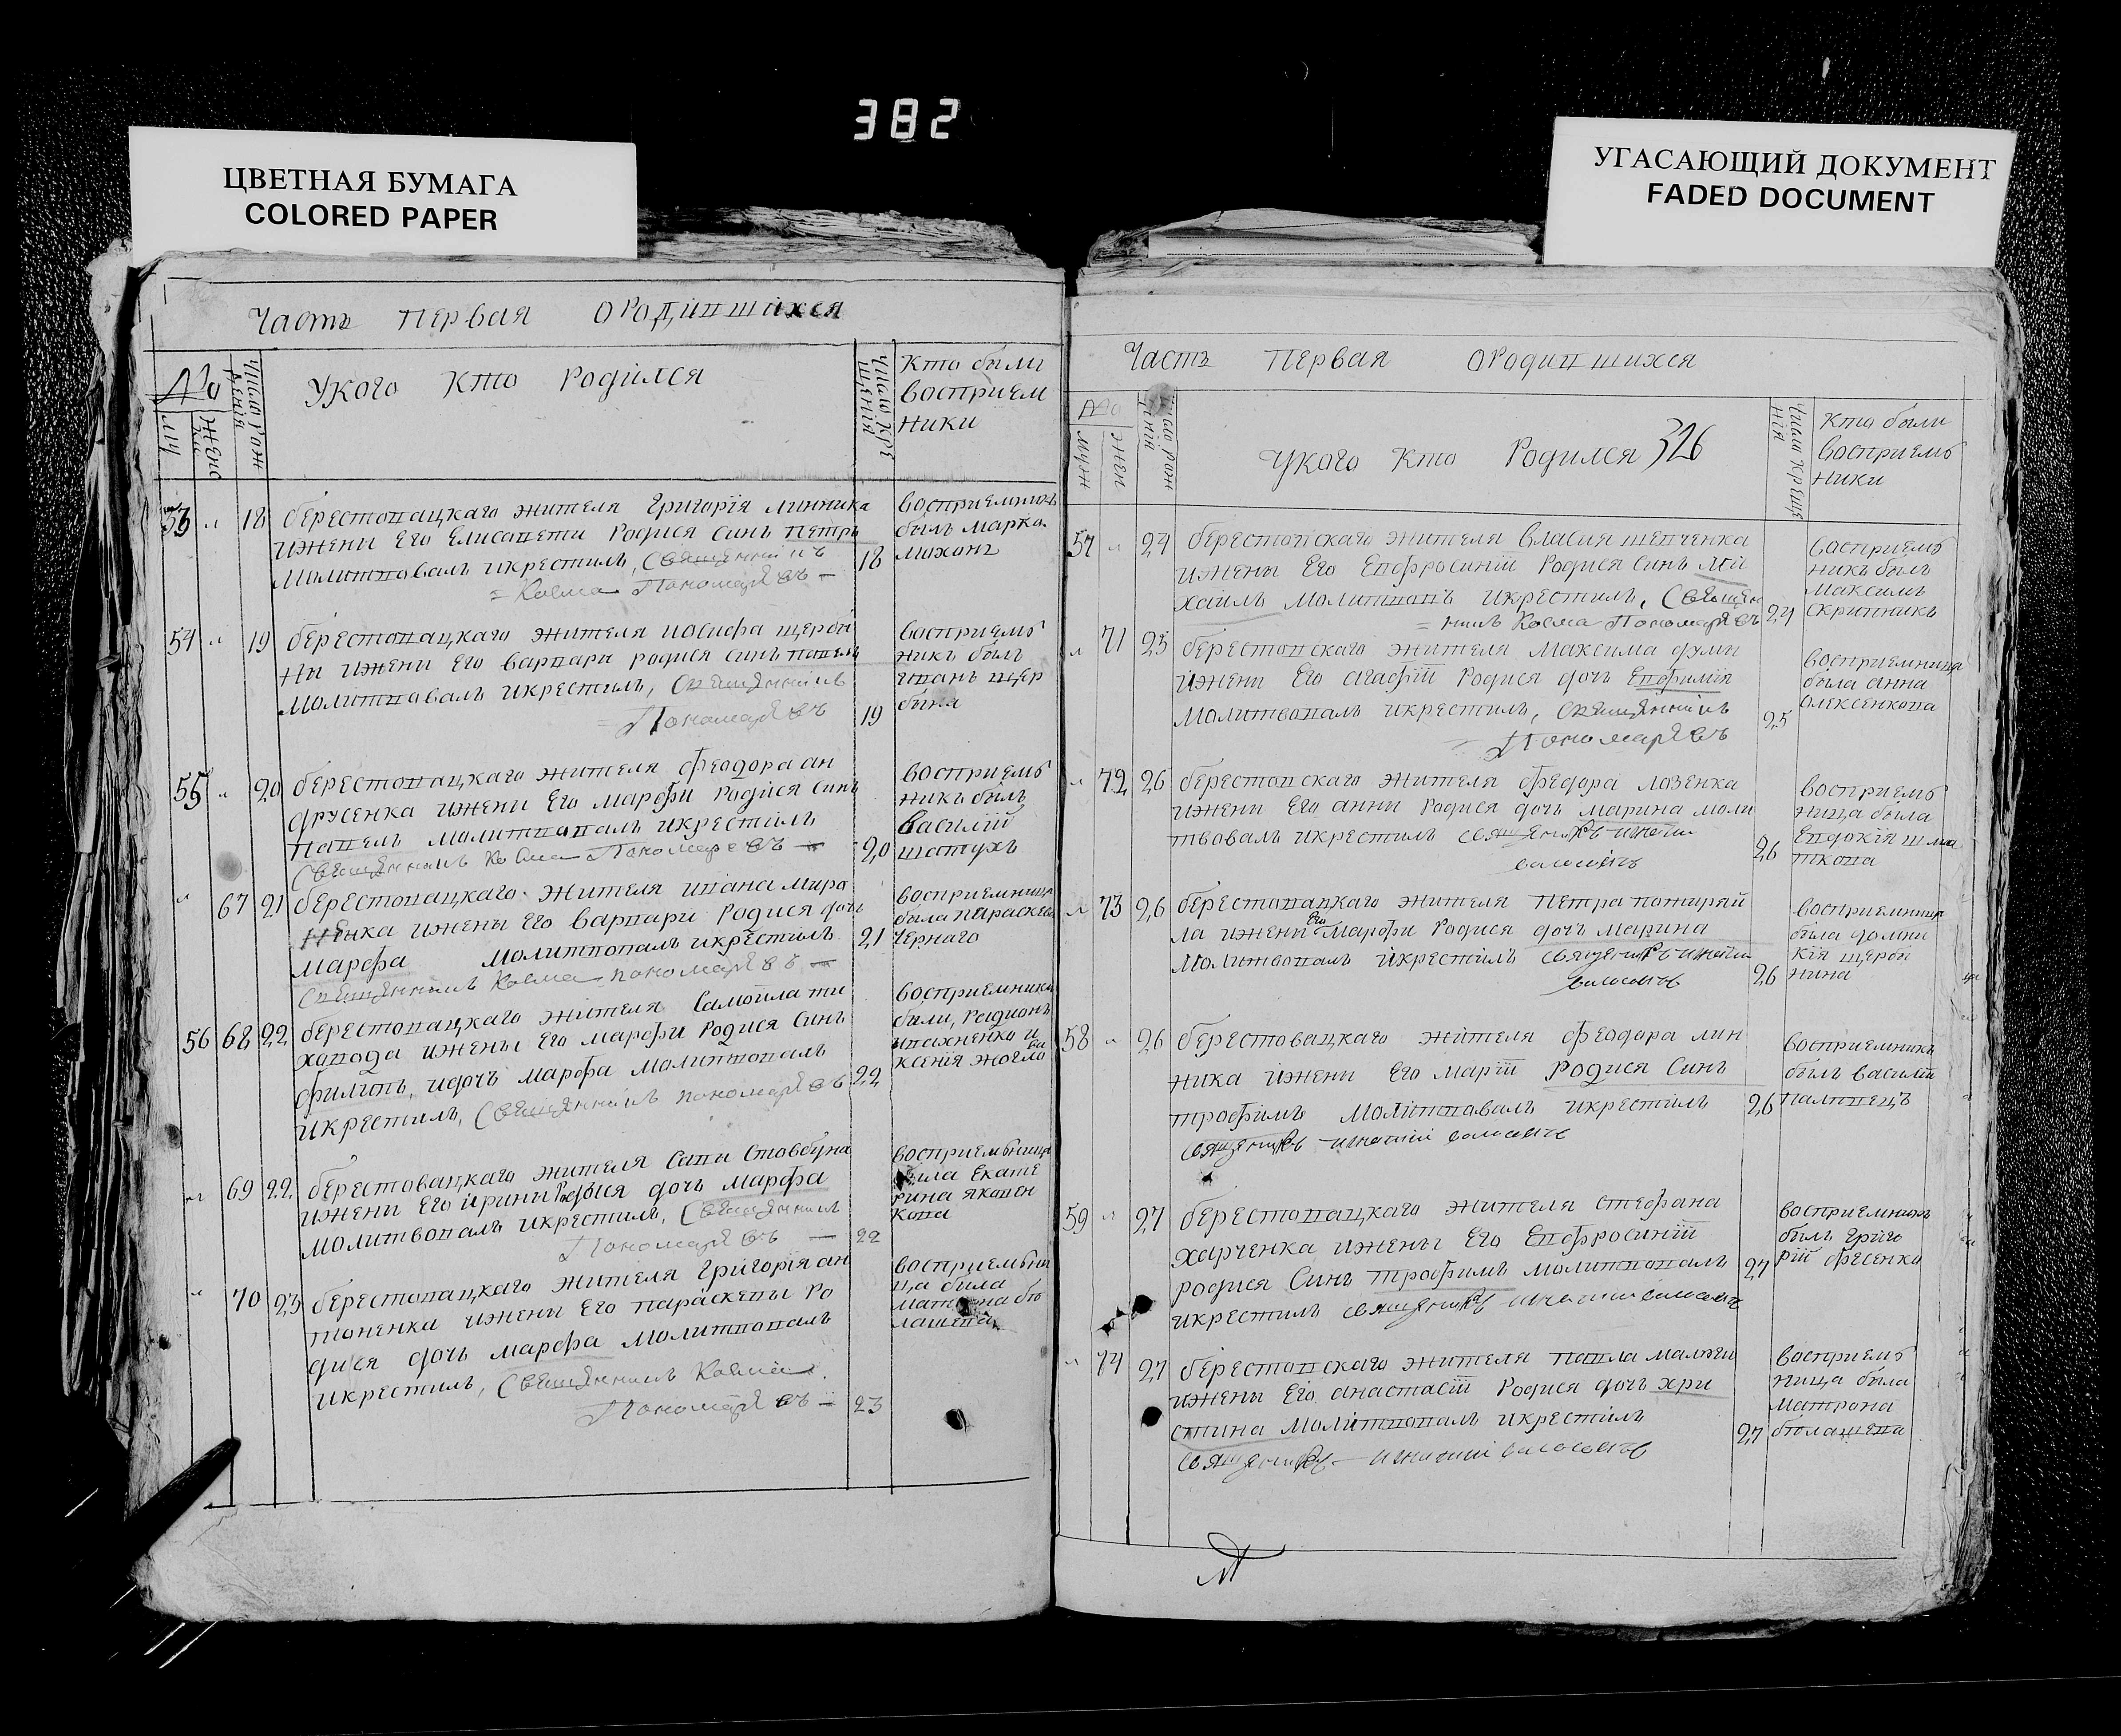 382
ЦВЕТНАЯ БУМАГА
COLORED PAPER
УГАСАЮЩИЙ ДОКУМЕНТ
FADED DOCUMENT
Часть Первая ородившихся
№
муч
женс
число рож
дения
Укого Кто родился
число кре
щения
Кто были
восприем
ники
53 " 18 берестовацкаго жителя Григорія линника
ижени Его Елисавети Родися синъ Петръ
Молитвовалъ икрестилъ, Священникъ
= Косма Пономарёвъ —
18
восприемникъ
былъ марко
54 " 19 берестовацкаго жителя иосифа щерби
ни ижени Его варвари родися синъ павелъ
молитвовалъ икрестилъ, Священникъ
= Пономарёвъ
19
восприемъ
никъ былъ
иванъ щер
бина
55 " 20 берестовацкаго жителя феодора ан
друсенка ижени Его Марфи Родися синъ
павелъ молитвовалъ икрестилъ
Священникъ Косма Пономаревъ —
20
восприемъ
никъ былъ
василій
шаповухъ
" 67 21 берестовацкаго жителя ивана миро
нька ижены Его варвари Родися дочь
марфа молитвовалъ икрестилъ
Священникъ Косма пономарёвъ —
21
восприемница
была параскева
чернаго
56 68 22 берестовацкаго жителя Самойла ти
ховода ижены Его Марфи Родися Синъ
филипъ, идочь марфа молитвовалъ
икрестилъ, Священникъ пономарёвъ
22
восприемники
были, Родионъ
ипахненко и
69 22 берестовацкаго жителя Сави Стовбуна
ижени Его Ирини Родися дочь марфа
молитвовалъ икрестилъ, Священникъ
Пономарёвъ — 22
восприемъница
была Екате
рина яковен
кова
" 70 23 берестовацкаго жителя Григорія ан
тоненка ижени Его параскевы Ро
дися дочь марфа Молитвовалъ
икрестилъ, Священникъ Косма
Пономарёвъ — 23
восприемъни
ца была
матрона бо
лашева
Часть Первая ородившихся
№
мужи
жени
число рож
дений
Укого Кто Родился 326
Число Креще
нія
Кто были
восприемъ
ники
57 " 24 берестовскаго жителя власия шевченка
ижены Его Евфросиніи Родися Синъ Ми
хаилъ молитвовалъ икрестилъ, Священ
= никъ Косма Пономарёвъ 24
восприемъ
никъ былъ
Максимъ
скринникъ
" 71 25 берестовскаго жителя Максима думи
ижени Его агафіи Родися дочь Евфимія
Молитвовалъ икрестилъ, Священникъ
= Пономарёвъ
25
восприемница
была анна
олексенкова
" 72 26 берестовскаго жителя федора лозенка
ижени Его анни Родися дочь марина моли
твовалъ икрестилъ священникъ игнатий
26
восприемъ
ница была
Евдокія шма
ткова
" 73 26 берестовацкаго жителя Петра
ла ижени Его Марфи Родися дочь марина
Молитвовалъ икрестилъ священникъ игнатий
26
восприемница
была домни
кія щерби
нина
58 " 26 берестовацкаго жителя феодора лин
ника ижени Его Маріи Родися Синъ
трофимъ молитвовалъ икрестилъ
священникъ игнатий
26
восприемникъ
былъ василій
59 " 27 берестовацкаго жителя стефана
харченка ижены Его Евфросиніи
родися Синъ трофимъ молитвовалъ
икрестилъ священникъ игнатий
27
восприемникъ
былъ григо
рій фесенко
" 74 27 берестовскаго жителя павла
ижены Его анастасіи Родися дочь хри
стина Молитвовалъ икрестилъ
священникъ — игнатий
27
восприемъ
ница была
матрона
болашева